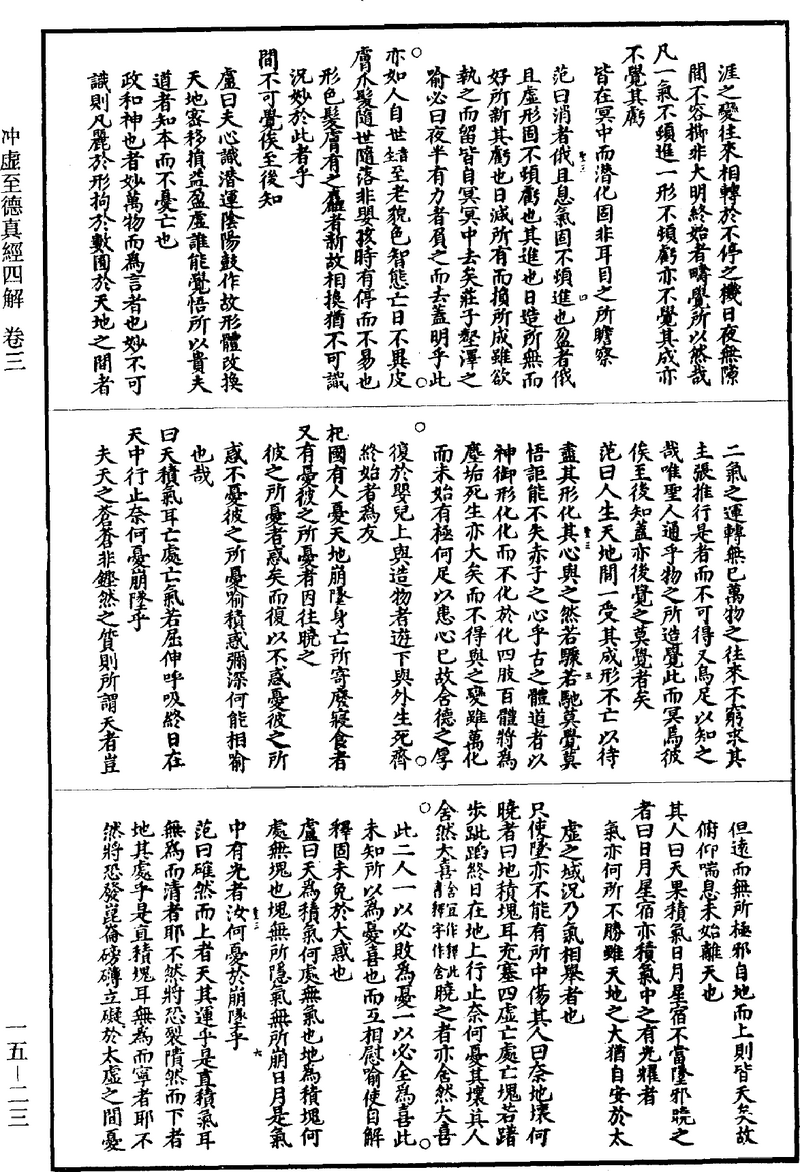 涯之變往來相轉於不停之機日夜無隙
間不容撕非大明終始者疇覺所以然哉
凡一氣不頓進一形不頓虧亦不覺其成亦
不覺其虧
皆在冥中而潜化固非耳目之所瞻察
范曰消者俄且息氣固不頓進也盈者俄
且虛形固不頓虧也其進也日造所無而
好所新其虧也日減所有而損所成雖欲
執之而留皆自冥冥中去矣莊子壑澤之
喻必曰夜半有力者負之而去蓋明乎此
亦如人自世音生至老貌色智態亡日不異皮
膚爪髮隨世隨落非嬰孩時有停而不易也
形色髮膚有之麤者新故相換猶不可識
況妙於此者乎
間不可覺俟至後知
盧曰夫心識潜運陰陽鼓作故形體改換
天地密移損益盈虛誰能覺悟所以貴夫
道者知本而不憂亡也
政和神也者妙萬物而為言者也妙不可
識則凡麗於形拘於數囿於天地之間者
二氣之運轉無已萬物之往來不窮求其
主張推行是者而不可得又烏足以知之
哉唯聖人通乎物之所造覺此而冥焉彼
俟至後知蓋亦後覺之莫覺者矣
范曰人生天地間一受其成形不亡以待
盡其形化其心與之然若驟若馳莫覺莫
悟詎能不失赤子之心乎古之體道者以
神御形化化而不化於化四肢百體將為
塵垢死生亦大矣而不得與之變雖萬化
而未始有極何足以患心已故含德之厚
復於嬰兒上與造物者遊下與外生死齊
終始者為友
杞國有人憂天地崩墜身亡所寄廢寢食者
又有憂彼之所憂者因往曉之
彼之所憂者惑矣而復以不惑憂彼之所
惑不憂彼之所憂喻積惑彌深何能相喻
也哉
曰天積氣耳亡處亡氣若屈伸呼吸終日在
天中行止奈何憂崩墜乎
夫天之蒼蒼非鏗然之質則所謂天者豈
但遠而無所極邪自地而上則皆天矣故
俯仰喘息未始離天也
其人曰天果積氣日月星宿不當墜邪曉之
者曰日月星宿亦積氣中之有光耀者
氣亦何所不勝雖天地之大猶自安於太
虛之域況乃氣相舉者也
只使墜亦不能有所中傷其人曰奈地壞何
曉者曰地積塊耳充塞四虛亡處亡塊若躇
步跐蹈終日在地上行止奈何憂其壞其人
舍然大喜舍宜作釋此釋字作舍曉之者亦舍然大喜
此二人一以必敗為憂一以必全為喜此
未知所以為憂喜也而互相慰喻使自解
釋固未免於大惑也
盧曰天為積氣何處無氣也地為積塊何
處無塊也塊無所隱氣無所崩日月是氣
中有光者汝何憂於崩墜乎
范曰確然而上者天其運乎是直積氣耳
無為而清者耶不然將恐裂隤然而下者
地其處乎是直積塊耳無為而寧者耶不
然將恐發崑崙磅礴立礙於太虛之間憂
冲虛至德真經四解 卷三
一五－二三